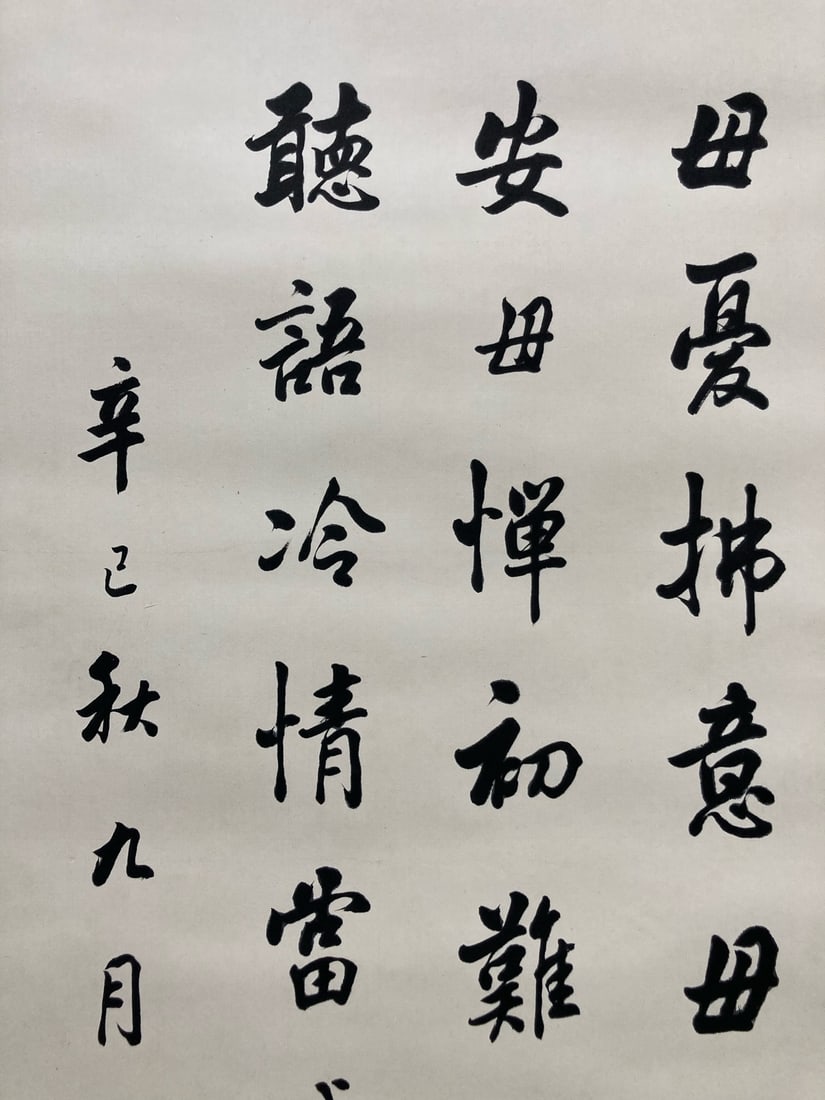 毋憂拂意毋
安毋憚初難
聽語冷情當
辛巳秋九月